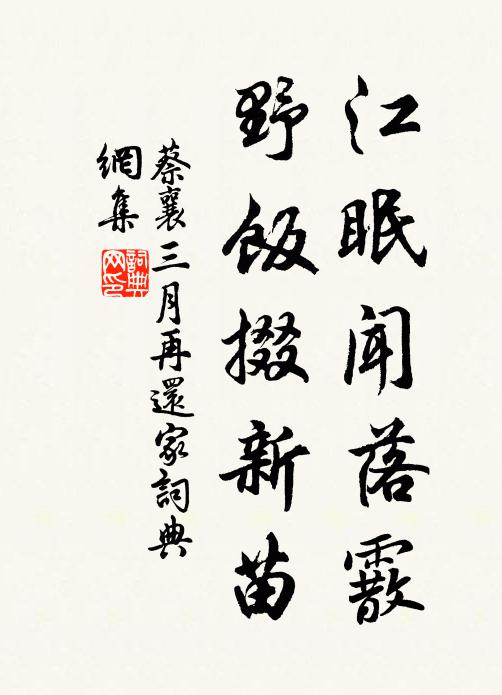 江眠聞落霰
野飯掇新苗
蔡襄三月再還家詞典
網集
詞典网印